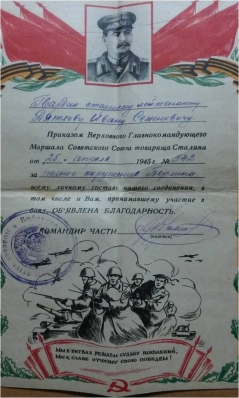 Гвардии старшему лейтенанту
Ивану Семеновичу
Приказом Верховного Главнокомандующего
Маршала Советского Союза товарища Сталина
от 25 апреля 1945 г. № 342
за полное окружение Берлина
всему личному составу нашего соединения, в
том числе и Вам, принимавшему участие в
боях, ОБ'ЯВЛЕНА БЛАГОДАРНОСТЬ.
КОМАНДИР ЧАСТИ
(подпись)
МЫ В БИТВАХ РЕШАЕМ СУДЬБУ ПОКОЛЕНИЙ,
МЫ К СЛАВЕ ОТЧИЗНУ СВОЮ ПОВЕДЕМ!